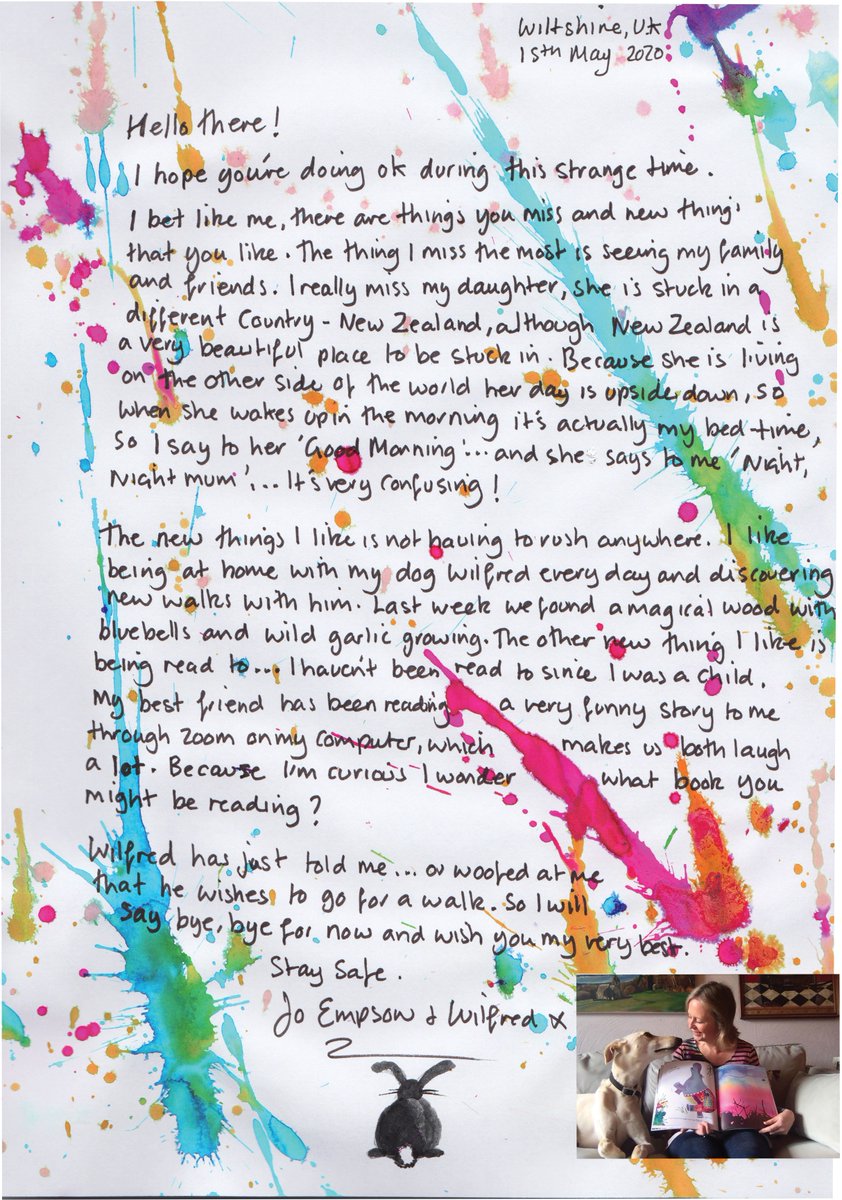 Wiltshire, UK
15th May 2020
Hello there!
I hope you're doing ok during this strange time.
I bet like me, there are things you miss and new things
that you like. The thing I miss the most is seeing my family
and friends. I really miss my daughter, she is stuck in a
different Country - New Zealand, although New Zealand is
a very beautiful place to be stuck in. Because she is living
on the other side of the world her day is upside down, so
when she wakes up in the morning it's actually my bed time,
So I say to her 'Good Morning'... and she says to me 'Night,
Night mum'... It's very confusing!
The new things I like is not having to rush anywhere. I like
being at home with my dog Wilfred every day and discovering
new walks with him. Last week we found a magical wood with
bluebells and wild garlic growing. The other new thing I like is
being read to... I havn't been read to since I was a child.
My best friend has been reading a very funny story to me
through Zoom on my computer, which makes us both laugh
a lot. Because I'm curiois I wonder what book you
might be reading?
Wilfred has just told me... or woofed at me
that he wishes to go for a walk. So I will
say bye, bye for now and wish you my very best.
Stay Safe.
Jo Empson & Wilfred x